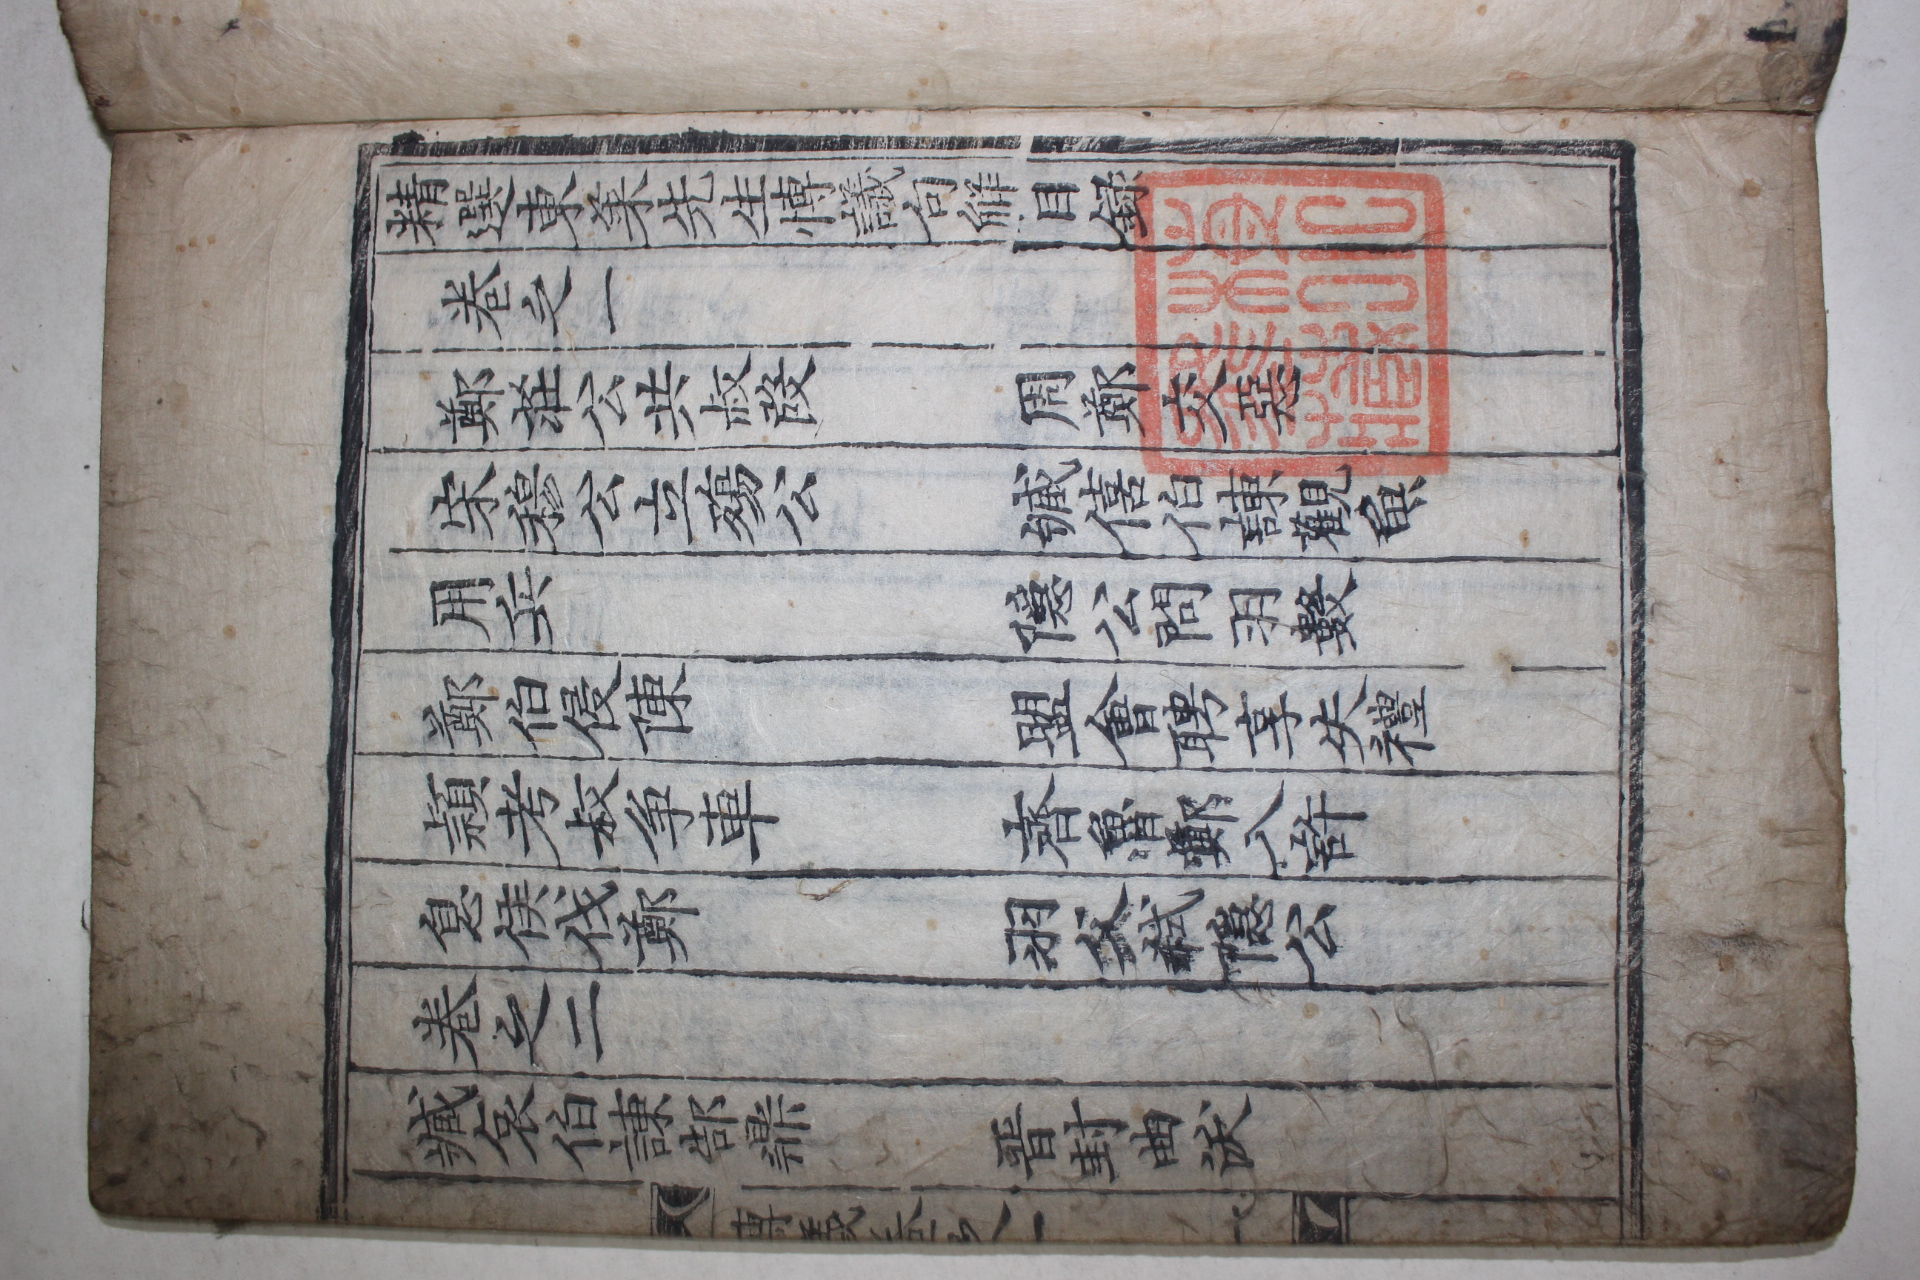 精選東萊先生愽議句觧目録
卷之一
鄭莊公共叔段 周鄭交惡
宋穆公立殤公 臧僖伯諌觀魚
用兵 隱公問羽數
鄭伯侵陳 盟會聘享失禮
頴考叔争車 齊魯鄭入許
息侯伐鄭 羽父弑隱公
卷之二
臧哀伯諌郜鼎 晋封曲沃
愽議卷之一